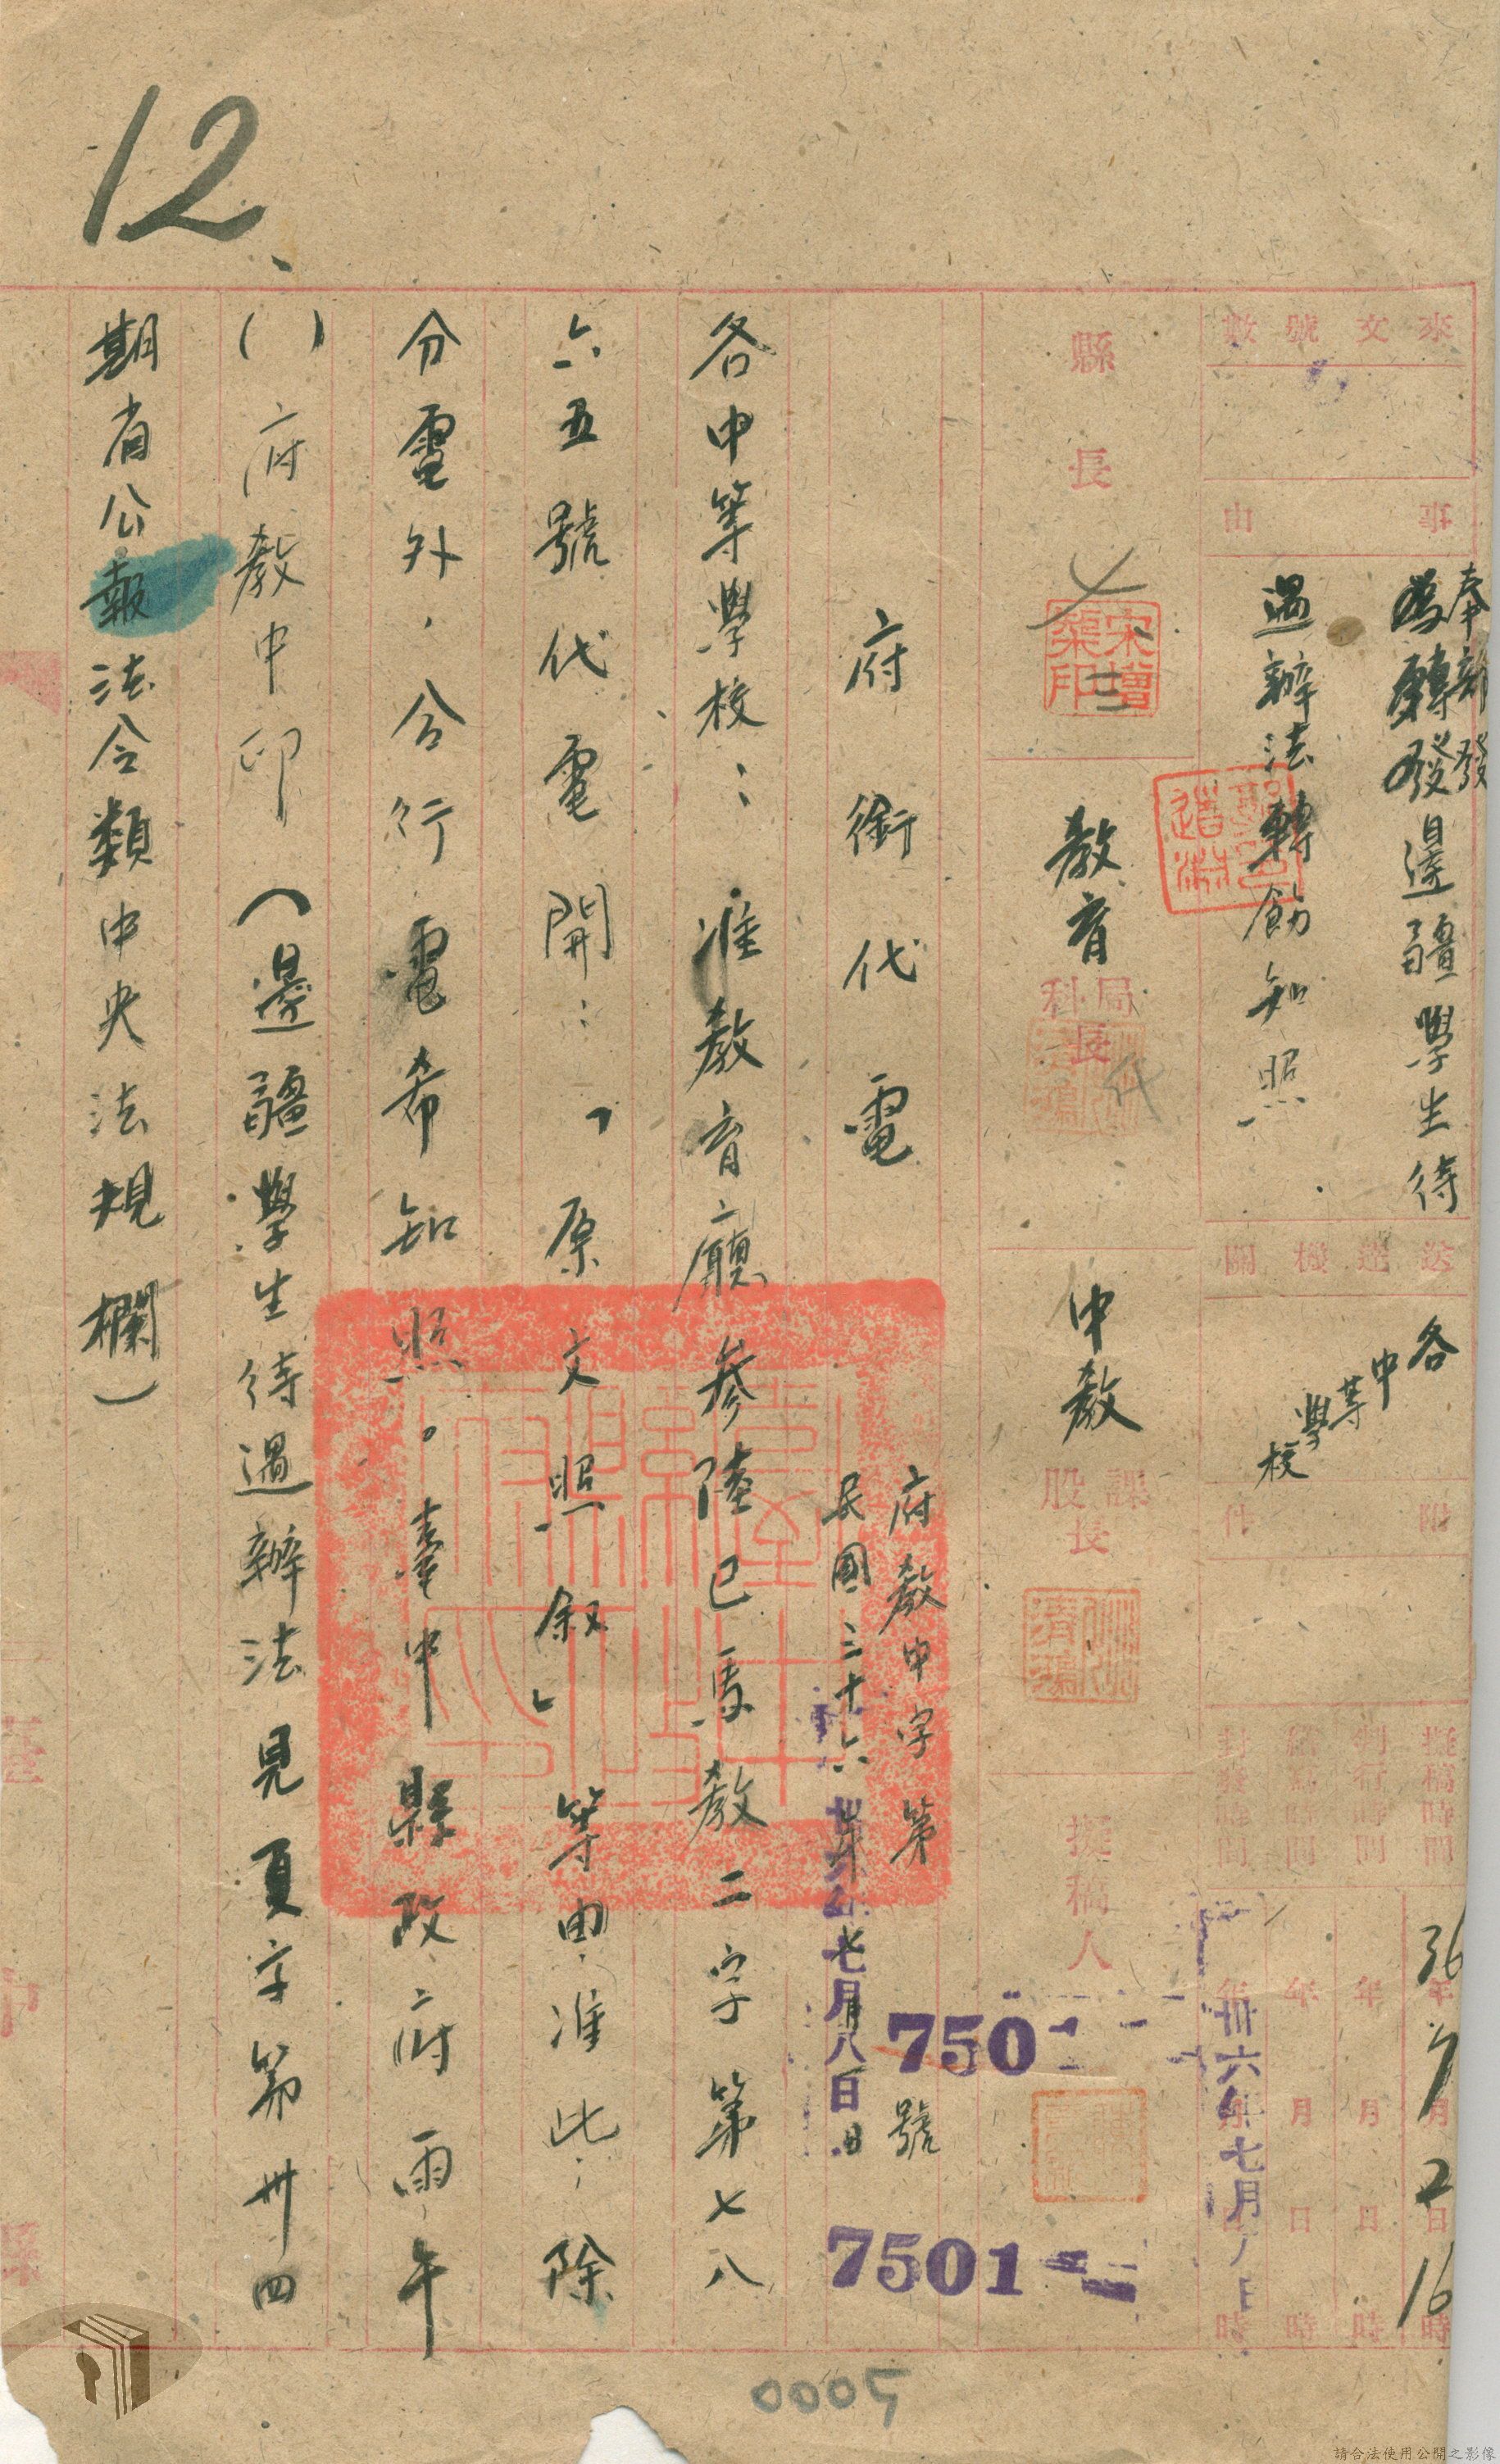 12
來文號數
事由
奉部發
為轉發邊疆學生待
遇辦法轉飭知照
送達機關
各中等學校
附件
擬稿時間
36年7月2日16時
年月日時
年月日時
卅六年七月 日
縣長
宋增榘印
教育
局科長
代
中教
課股長
擬稿人
府銜代電
府教中字第
7501
號
民國三十六年七月八日
7501
各中等學校：准教育廳參陸巳馬教二字第七八
六五號代電開：「原文照敘」等由准此；除
分電外，合行電希知照。臺中縣政府雨午
（ ）府教中印（邊疆學生待遇辦法見夏字第卅四
期省公報法令類中央法規欄）
0005
請合法使用公開之影像